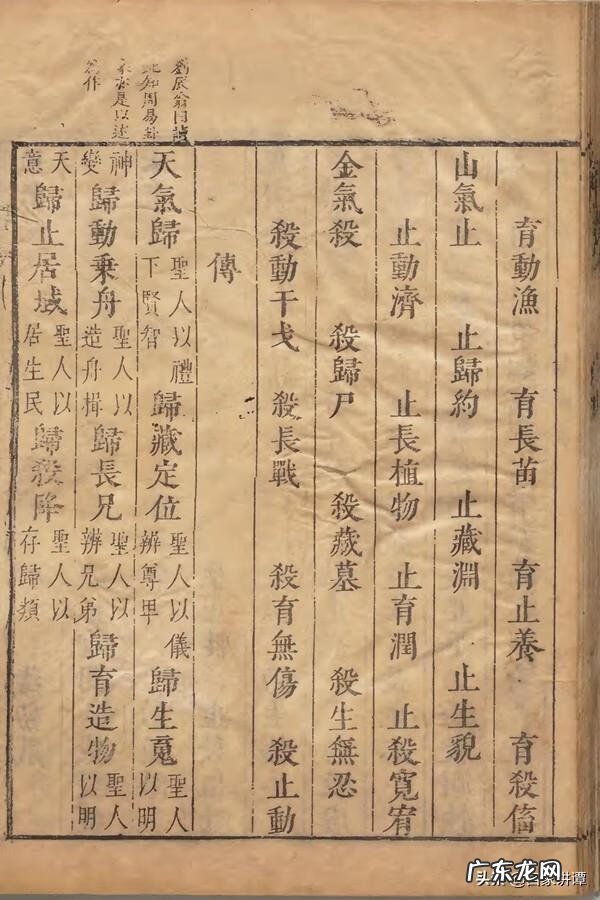 育動漁 育長苗 育止養 育殺
山氣止 止歸約 止藏淵 止生貌
止動濟 止長植物 止育潤 止殺寬宥
金氣殺 殺歸尸 殺藏墓 殺生無忍
殺動干戈 殺長戰 殺育無傷 殺止動
傳
劉辰翁曰讀
此知周易卦
家亦是以述
爲作
天氣歸 聖人以禮下賢智 歸藏定位 聖人以儀辨尊卑 歸生䰟 聖人以明
神變 歸動乘舟 聖人以造舟楫 歸長兄 聖人以辨兄弟 歸育造物 聖人以明
天意 歸止居域 聖人以居生民 歸殺降 聖人以存歸類
广东龙网
头条 @百家讲谭